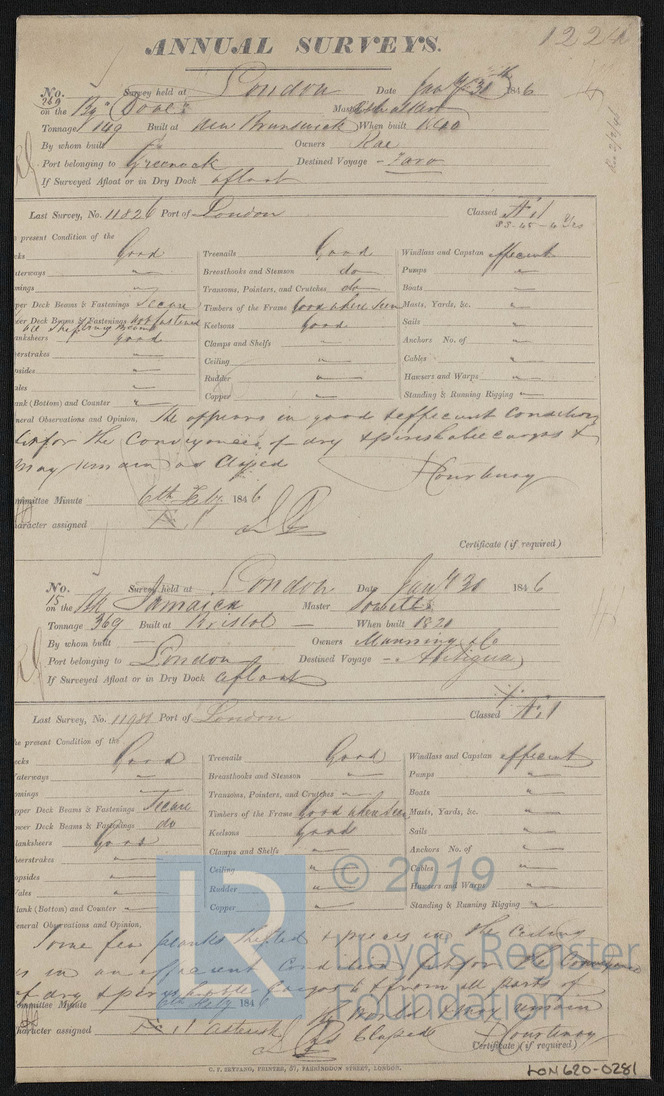 ANNUAL SURVEYS.
No. 249 Survey held at London Date Jany 30th 1846
on the Bgn Dove Master
Tonnage 149 Built at New Brunswick When built
By whom built Owners Rae
Port belonging to Greenock Destined Voyage - Faro
If Surveyed Afloat or in Dry Dock afloat
Last Survey, No. 11826 Port of London Classed Æ 1
present Condition of the
cks Good Treenails Good Windlass and Capstan efficient
aterways " Breasthooks and Stemson do Pumps "
mings " Transoms, Pointers, and Crutches do Boats "
per Deck Beams & Fastenings Secure Timbers of the Frame Good where seen Masts, Yards, &c. "
wer Deck Beams & Fastenings not fastened Keelsons Good Sails "
anksheers good Clamps and Shelfs " Anchors No. of "
eerstrakes " Ceiling " Cables "
psides " Rudder " Hawsers and Warps "
ales " Copper " Standing & Running Rigging "
ank (Bottom) and Counter "
neral Observations and Opinion, She appears in good & efficient Condition
fit for the Conveyance of dry & perishable cargos &
may remain as Classed
Courtenay
mmittee Minute 6th Feby 1846
haracter assigned Æ 1
Certificate (if required)
No. 15 Survey held at London Date Jany 30 1846
on the Jamaica Master
Tonnage 369 Built at Bristol When built 1820
By whom built Owners Manning & Co
Port belonging to London Destined Voyage - Antigua
If Surveyed Afloat or in Dry Dock afloat
Last Survey, No. Port of London Classed Æ 1
he present Condition of the
ecks Good Treenails Good Windlass and Capstan efficient
aterways " Breasthooks and Stemson " Pumps "
omings " Transoms, Pointers, and Crutches " Boats "
pper Deck Beams & Fastenings Secure Timbers of the Frame Good where seen Masts, Yards, &c. "
ower Deck Beams & Fastenings do Keelsons Good Sails "
lanksheers Good Clamps and Shelfs " Anchors No. of "
heerstrakes " Ceiling " Cables "
opsides " Rudder " Hawsers and Warps "
Wales " Copper " Standing & Running Rigging "
lank (Bottom) and Counter "
eneral Observations and Opinion,
Some few planks shifted & pieces in the Ceiling
is in an efficient Condition fit for the Conveyance
of dry & perishable Cargos to & from all parts of
the World & may remain
as Classed
ommittee Minute 6th Feby 1846
haracter assigned Æ 1 asterisk
Courtenay
Certificate (if required)
C. F. SEYFANG, PRINTER, 57, FARRINGDON STREET, LONDON.
LON620-0281
© 2019
Lloyd's Register
Foundation